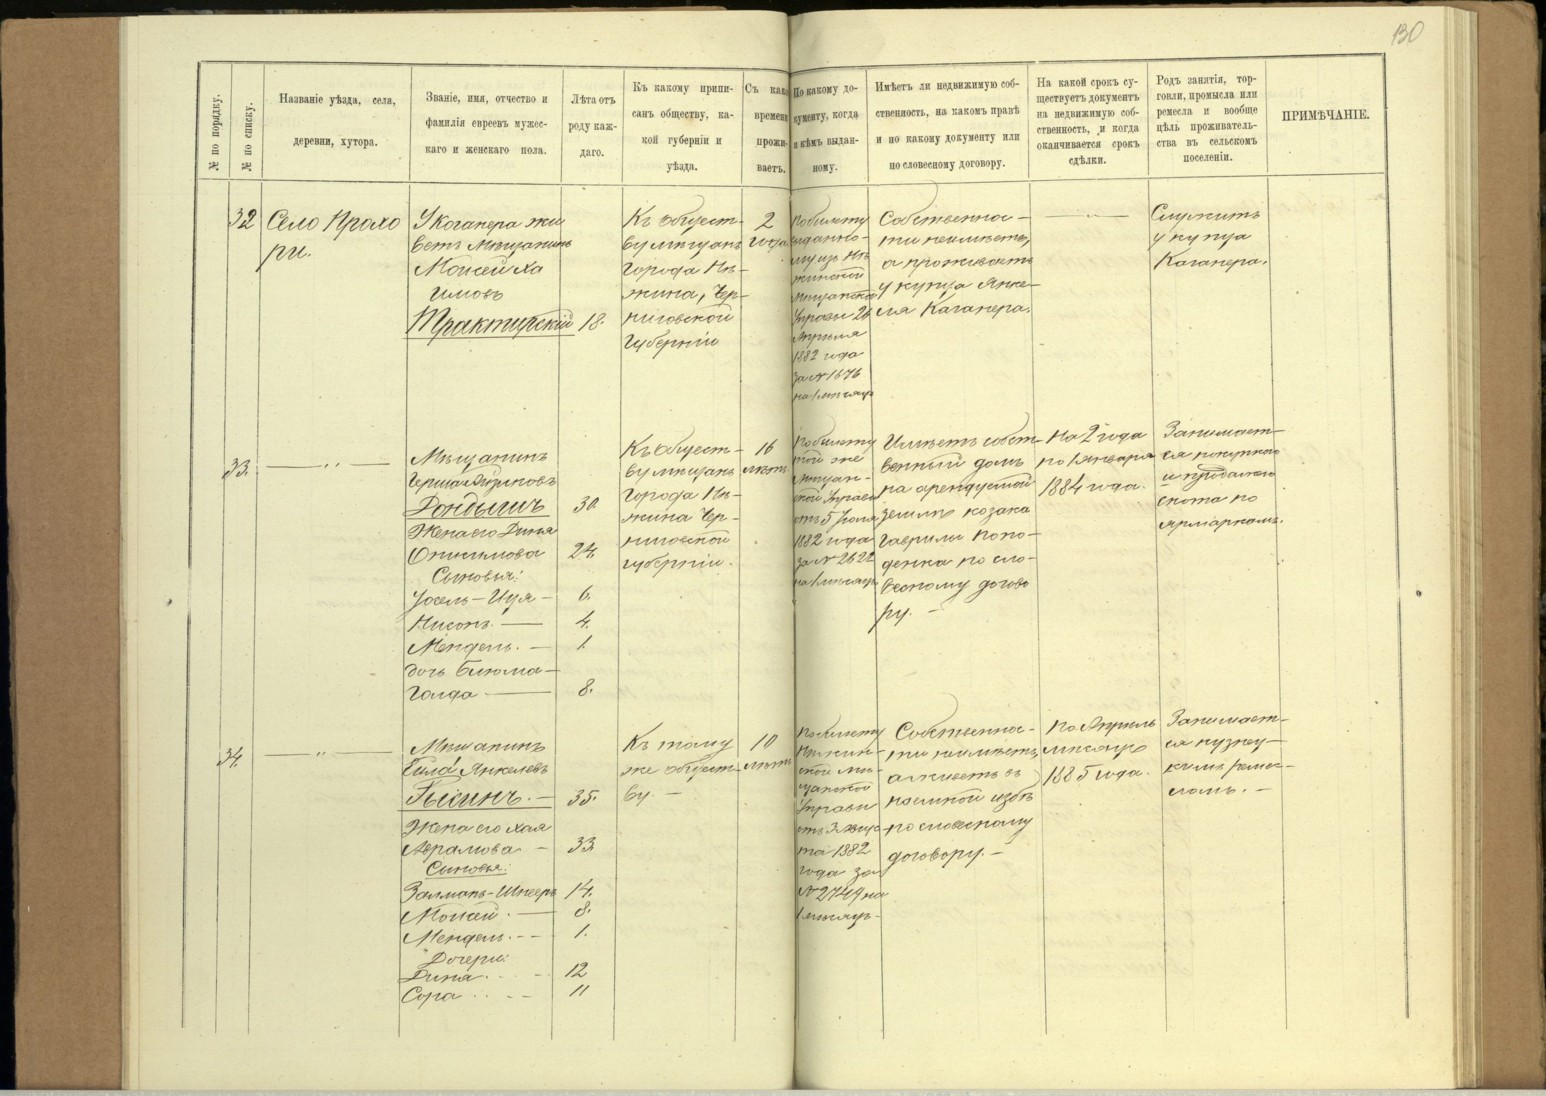 130
№ по порядку.
№ по списку.
Названіе уѣзда, села,
деревни, хутора.
Званіе, имя, отчество и
фамилія евреевъ мужес-
каго и женскаго пола.
Лѣта отъ
роду каж-
даго.
Къ какому припи-
санъ обществу, ка-
кой губерніи и
уѣзда.
Съ како
времени
прожи-
ваетъ.
По какому до-
кументу, когда
и кѣмъ выдан-
ному.
Имѣетъ ли недвижимую соб-
ственность, на какомъ правѣ
и по какому документу или
по словесному договору.
На какой срокъ су-
ществуетъ документъ
на недвижимую соб-
ственность, и когда
оканчивается срокъ
сдѣлки.
Родъ занятія, тор-
говли, промысла или
ремесла и вообще
цѣль проживатель-
ства въ сельскомъ
поселеніи.
ПРИМѢЧАНІЕ.
32
Село Прохо
ры.
У Каганера жи
ветъ мѣщанинъ
Моисей Ха
имовъ
Трактирскій 18.
Къ общест-
ву мѣщанъ
города Нѣ-
жина, Чер-
ниговской
губерніи
2
года
по билету
выданно-
му изъ Нѣ
жинской
мѣщанской
Управы 26
Апрѣля
1882 года
за № 1676
на 1 мѣсяцъ
Собственнос-
ти неимѣетъ,
а проживаетъ
у купца Янке-
ля Каганера.
Служитъ
у купца
Каганера.
33.
— " —
Мѣщанинъ
Герша
Дондышъ 30.
Жена его Дина
Онисимова 24.
Сыновья:
Иосель-Иця - 6.
Нисонъ. — 4.
Мендель. — 1.
дочь Блюма-
Голда — 8.
Къ общест-
ву мѣщанъ
города Нѣ-
жина Чер-
ниговской
губерніи.
16
лѣтъ
По билету
той же
мѣщан-
ской Управы
отъ 5 Іюля
1882 года
за № 2622
на 1 мѣсяцъ
Имѣетъ собст-
венный домъ
на арендуемой
землѣ козака
Гаврилы Попо-
денка по сло-
весному догово
ру. —
На 2 года
по 1 января
1884 года.
Занимает-
ся покупкою
и продажею
скота по
ярмаркамъ.
34.
— " —
Мѣщанинъ
Гила Янкелевъ
Гысинъ. — 35.
Жена его Хая
Аврамова — 33.
Сыновья:
Залманъ-Шнеръ 14.
Моисей. — 8.
Мендель. — 1.
Дочери:
Дина. 12
Сора. 11
Къ тому
же общест-
ву. —
10
лѣтъ
По билету
Нѣжин-
ской мѣ-
щанской
Управы
отъ 3 Авгус-
та 1882
года за
№ 2749 на
1 мѣсяцъ.
Собственнос-
ти неимѣетъ,
а живетъ въ
наемной избѣ
по словесному
договору. —
По Апрѣль
мѣсяцъ
1885 года.
Занимает-
ся кузнеч-
нымъ ремес-
ломъ. —